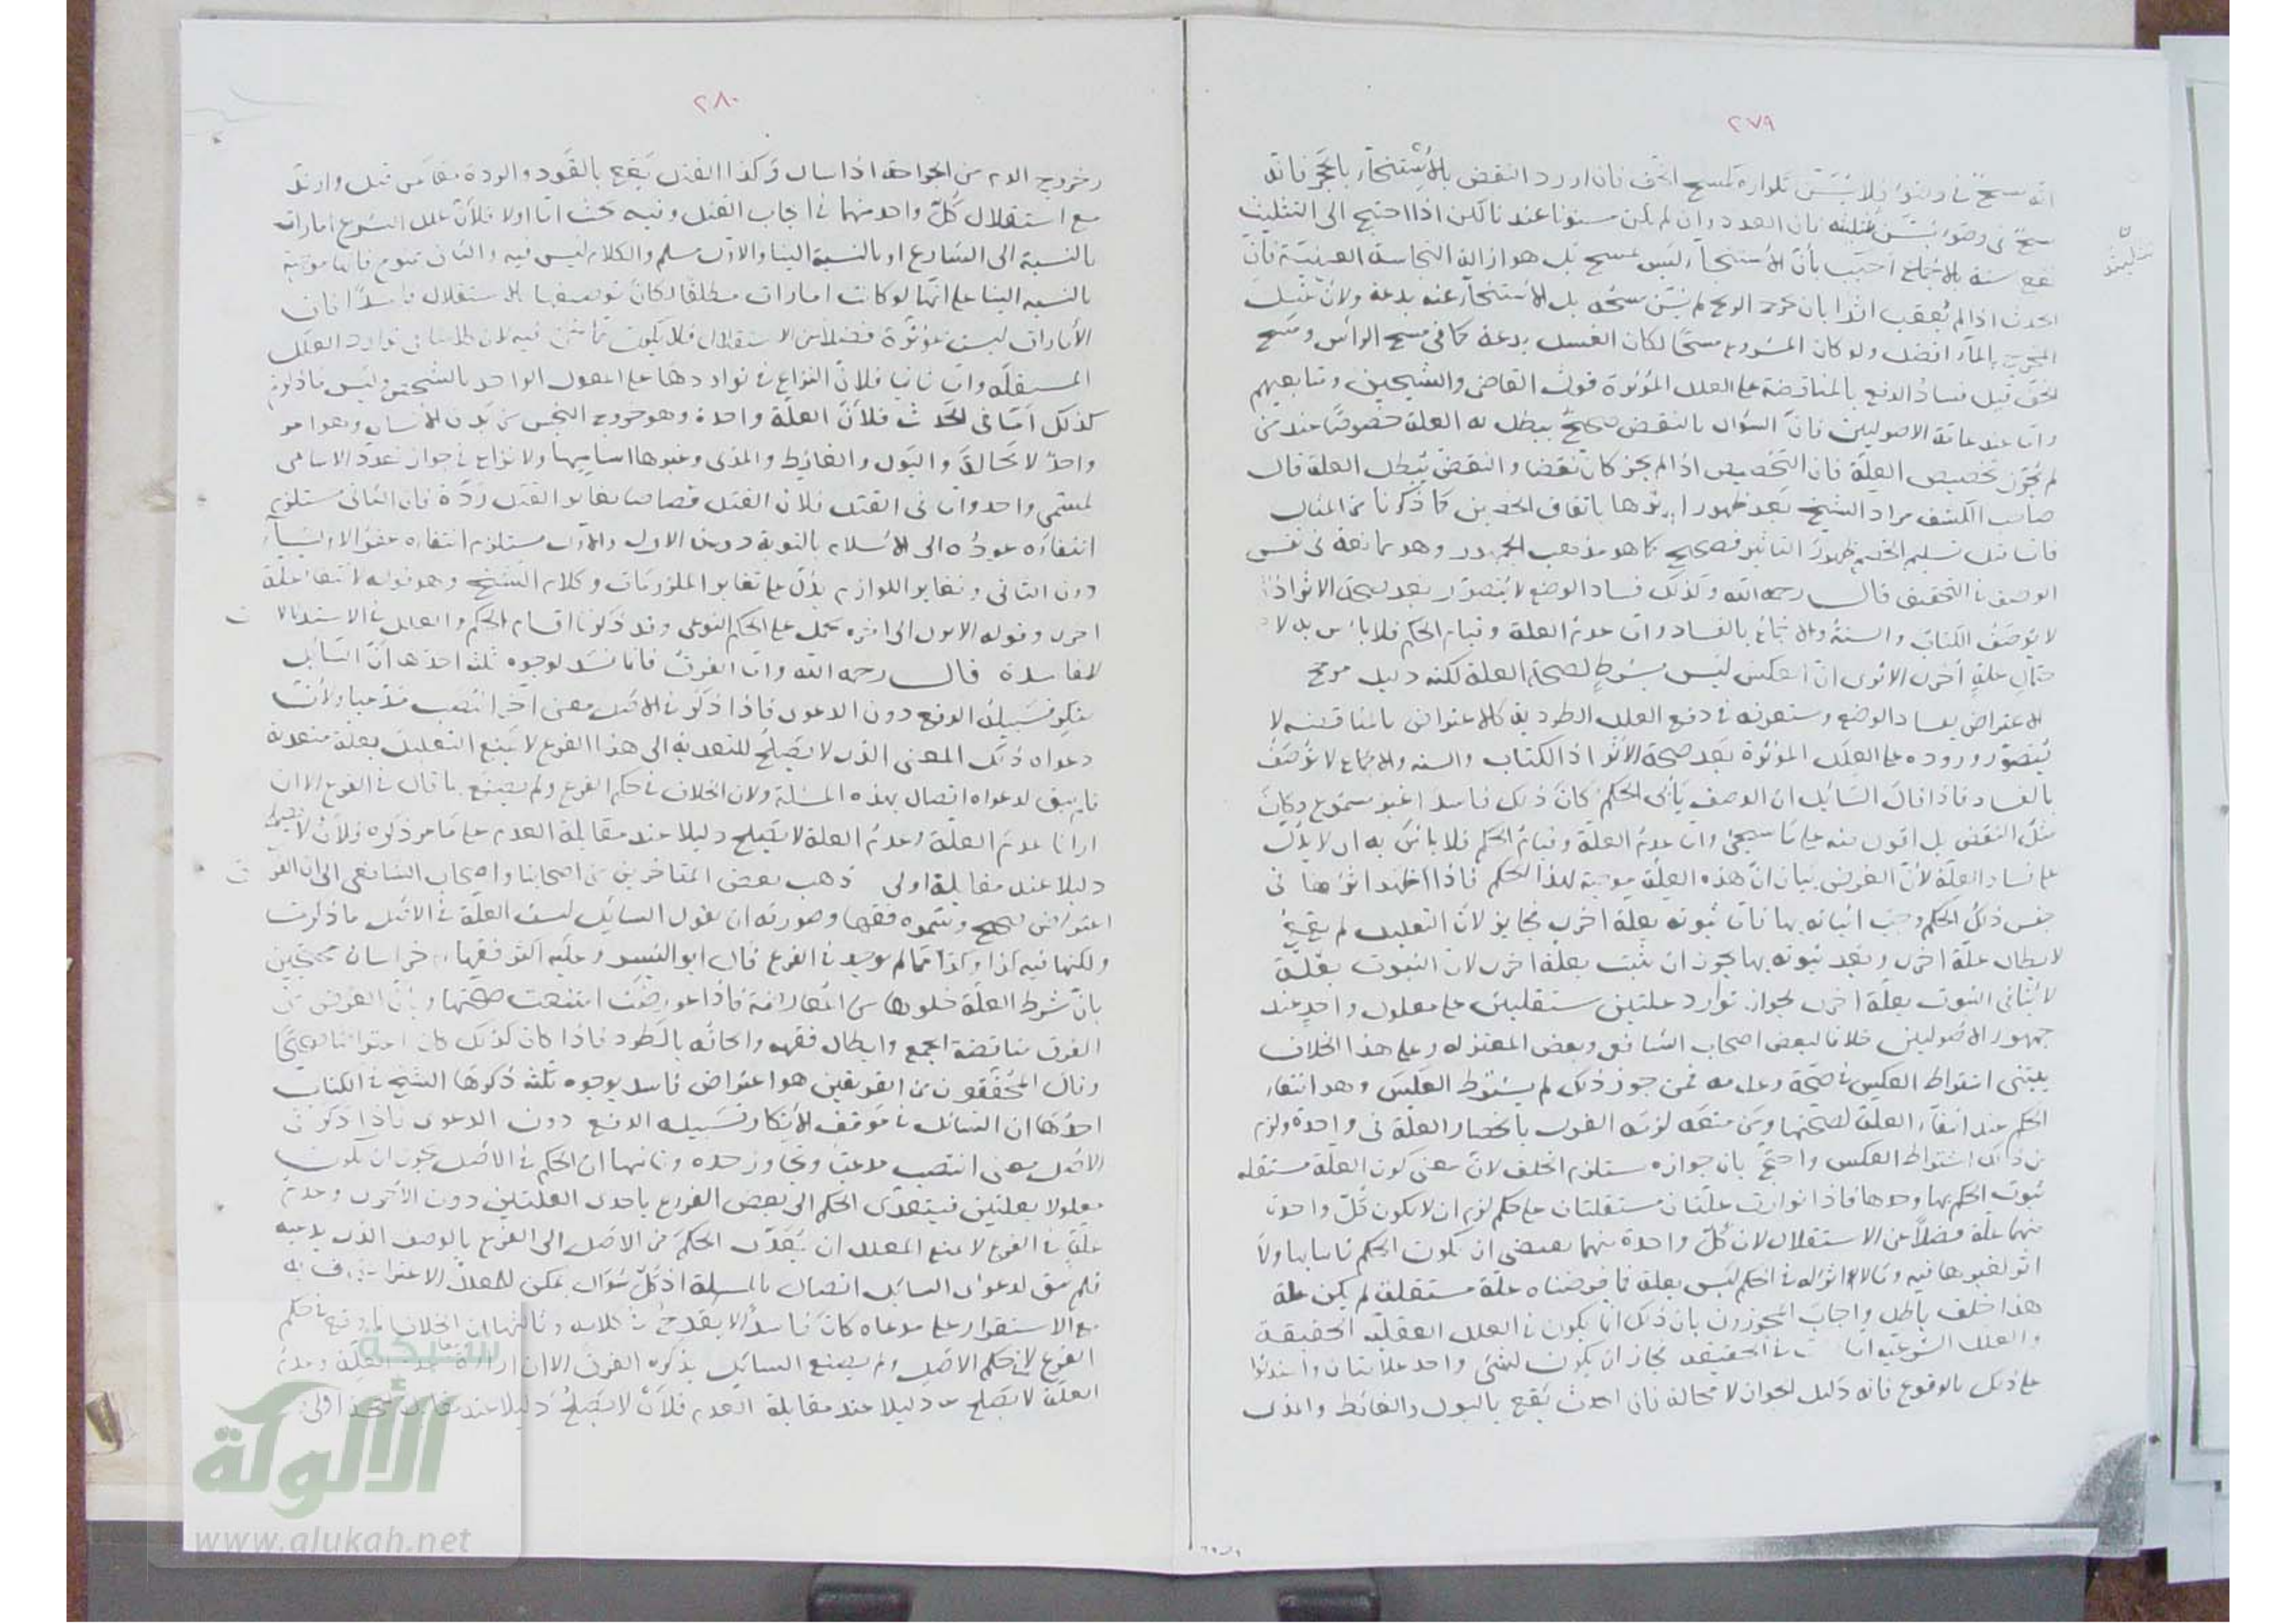 ٢٧٩
انه مسح في وضوء فلا يسن تكراره كمسح الخف فان اورد النقض بالاستنجاء بالحجر فانه
مسح في وضوء يسن تثليثه فان العدد وان لم يكن مسنونا عندنا لكن اذا احتيج الى التثليث
تثليثه
يقع سنة بالاجماع اجيب بان الاستنجاء ليس بمسح بل هو ازالة النجاسة العينية فان
الحدث اذا لم يعقب اثرا بان خرج الريح لم يسن مسحه بل الاستنجاء عنه بدعة ولان غسل
المخرج بالماء افضل ولو كان المشروع مسحا لكان الغسل بدعة كما في مسح الرأس ومسح
الخف قيل فساد الدفع بالمناقضة على العلل المؤثرة قول القاضي والشيخين ومتابعيهم
واما عند عامة الاصوليين فان السؤال بالنقض صحيح يبطل به العلة خصوصا عند من
لم يجوز تخصيص العلة فان التخصيص اذا لم يجز كان نقضا والنقض يبطل العلة قال
صاحب الكشف مراد الشيخ بعد ظهور اثرها باتفاق الخصمين كما ذكرنا من المثال
فاما قبل تسليم الخصم ظهور التأثير فصحيح كما هو مذهب الجمهور وهو ممانعة في نفس
الوصف في التحقيق قال رحمه الله وكذلك فساد الوضع لا يتصور بعد صحة الاثر اذ
لا يوصف الكتاب والسنة والاجماع بالفساد واما عدم العلة وقيام الحكم فلا بأس به لا
حتمال علة اخرى الا ترى ان العكس ليس بشرط لصحة العلة لكنه دليل مرجح
الاعتراض بفساد الوضع وستعرفه في دفع العلل الطردية كالاعتراض بالمناقضة لا
يتصور وروده على العلل المؤثرة بعد صحة الاثر اذ الكتاب والسنه والاجماع لا توصف
بالفساد فاذا قال السائل ان الوصف يأبى الحكم كان ذلك فاسدا غير مسموع وكان
مثل النقض بل اقوى منه على ما سيجئ واما عدم العلة وقيام الحكم فلا بأس به اي لا يدل
على فساد العلة لان الغرض بيان ان هذه العلة موجبة لهذا الحكم فاذا اظهر اثرها في
جنس ذلك الحكم وجب اثباته بها فاما ثبوته بعلة اخرى فجايز لان التعليل لم يقع
لابطال علة اخرى وبعد ثبوته بها يجوز ان يثبت بعلة اخرى لان الثبوت بعلة
لا ينافي الثبوت بعلة اخرى لجواز توارد علتين مستقلتين على معلول واحد عند
جمهور الاصوليين خلافا لبعض اصحاب الشافعي وبعض المعتزلة وعلى هذا الخلاف
يبتنى اشتراط العكس في صحة وعدمه فمن جوز ذلك لم يشترط العكس وهو انتفاء
الحكم عند انتفاء العلة لصحتها ومن منعه لزمه القول بانحصار العلة في واحدة ولزم
من ذلك اشتراط العكس واحتج بان جوازه يستلزم الخلف لان معنى كون العلة مستقله
ثبوت الحكم بها وحدها فاذا توارت علتان مستقلتان على حكم لزم ان لا يكون كل واحدة
منهما علة فضلا عن الاستقلال لان كل واحدة منهما يقتضي ان يكون الحكم ثابتا بها ولا
اثر لغيرها فيه وما لا اثر له في الحكم ليس بعلة فما فرضناه علة مستقلة لم يكن علة
هذا خلف باطل واجاب المجوزون بان ذلك انما يكون في العلل العقلية الحقيقة
والعلل الشرعية في الحقيقة فجاز ان يكون لشئ واحد علامتان واستدلوا
على ذلك بالوقوع فانه دليل الجواز لا محالة فان الحدث يقع بالبول والغائط والمذي
٢٨٠
وخروج الدم من الجراحة اذا سال وكذا القتل يقع بالقود والردة معا من قتل وارتد
مع استقلال كل واحد منهما في ايجاب القتل وفيه بحث اما اولا فلأن علل الشرع امارات
بالنسبة الى الشارع او بالنسبة الينا والاول مسلم والكلام ليس فيه والثاني ممنوع فانها موجبة
بالنسبه الينا على انها لو كانت امارات مطلقا لكان توصيفها بالاستقلال فاسدا فان
الأمارات ليست بمؤثرة فضلا من الاستقلال فلا يكون مما نحن فيه لان كلامنا في توارد العلل
المستقلة واما ثانيا فلان النزاع في تواردها على المعلول الواحد بالشخص وليس ما ذكرتم
كذلك اما في الحدث فلأن العلة واحدة وهو خروج النجس من بدن الانسان وهو امر
واحد لا محالة والبول والغائط والمذى وغيرها اساميها ولا نزاع في جواز تعدد الاسامى
لمسمى واحد واما في القتل فلان القتل قصاصا يغاير القتل ردة فان الثاني يستلزم
انتفاؤه عوده الى الاسلام بالتوبة دون الاول والاول يستلزم انتفاره عفو الاولياء
دون الثاني وتغاير اللوازم يدل على تغاير الملزومات وكلام الشيخ وهو قوله لانتفاء علة
اخرى وقوله الا يرى الى اخره يحمل على الحكم النوعى وقد ذكرنا اقسام الحكم والعلل في الاستدلالات
الفاسدة قال رحمه الله واما الفرق فانما فسد لوجوه ثلثة احدها ان السائل
منكر فسبيله الدفع دون الدعوى فاذا ذكر في الاصل معنى آخر انتصب مدعيا ولأن
دعواه ذلك المعنى الذي لا يصلح للتعدية الى هذا الفرع لا يمنع التعليل بعلة متعدية
فلم يبق لدعواه اتصال بهذه المسئلة ولان الخلاف في حكم الفرع ولم يصنع بما قال في الفرع الا ان
ارانا عدم العلة وعدم العلة لا يصلح دليلا عند مقابلة العدم على ما مر ذكره فلأن لا يصلح
دليلا عند مقابلة اولى ذهب بعض المتاخرين من اصحابنا واصحاب الشافعي الى ان الفرق
اعتراض صحيح وسموه فقها وصورته ان يقول السايل ليست العلة في الاصل ما ذكرت
ولكنها فيه كذا وكذا مما لم يوجد في الفرع قال ابو اليسر وعليه اكثر فقهاء خراسان محتجين
بان شرط العلة خلوها من المعارضة فاذا عورضت امتنعت صحتها وبأن الغرض من
الفرق مناقضة الجمع وابطال فقهه والحاقه بالطرد فاذا كان كذلك كان اعتراضا صحيحا
وقال المحققون من الفريقين هو اعتراض فاسد بوجوه ثلثة ذكرها الشيخ في الكتاب
احدها ان السائل في موقف الانكار فسبيله الدفع دون الدعوى فاذا ذكر في
الاصل معنى انتصب مدعيا وتجاوز حده وثانيها ان الحكم في الاصل يجوز ان يكون
معلولا بعلتين فيتعدى الحكم الى بعض الفروع باحدى العلتين دون الأخرى وعدم
علة في الفرع لا يمنع المعلل ان يعدى الحكم من الاصل الى الفرع بالوصف الذي يدعيه
فلم يبق لدعوى السائل اتصال بالمسئلة اذ كل سؤال يمكن للمعلل الاعتراف به
مع الاستقرار على مدعاه كان فاسدا لا يقدح في كلامه وثالثها ان الخلاف وقع في حكم
الفرع لا في حكم الاصل ولم يصنع السائل بذكره الفرق الا ان ارانا عدم العلة وعدم
العلة لا يصلح دليلا عند مقابلة العدم فلأن لا يصلح دليلا عند مقابلة اولى
شبكة
الألوكة
www.alukah.net